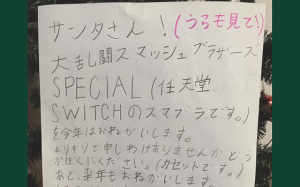 サンタさん！(うらも見て!)
大乱闘スマッシュブラザーズ
SPECIAL (任天堂
SWITCHのスマブラです。)
を今年はおねがいします。
ギリギリで申しわけありませんがどう
かぼくにください。(カセットです。)
あと、来年もおねがいします。